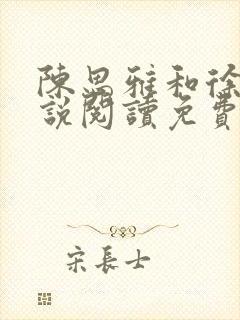 陳思雅和徐
說閱讀免費
宋長士